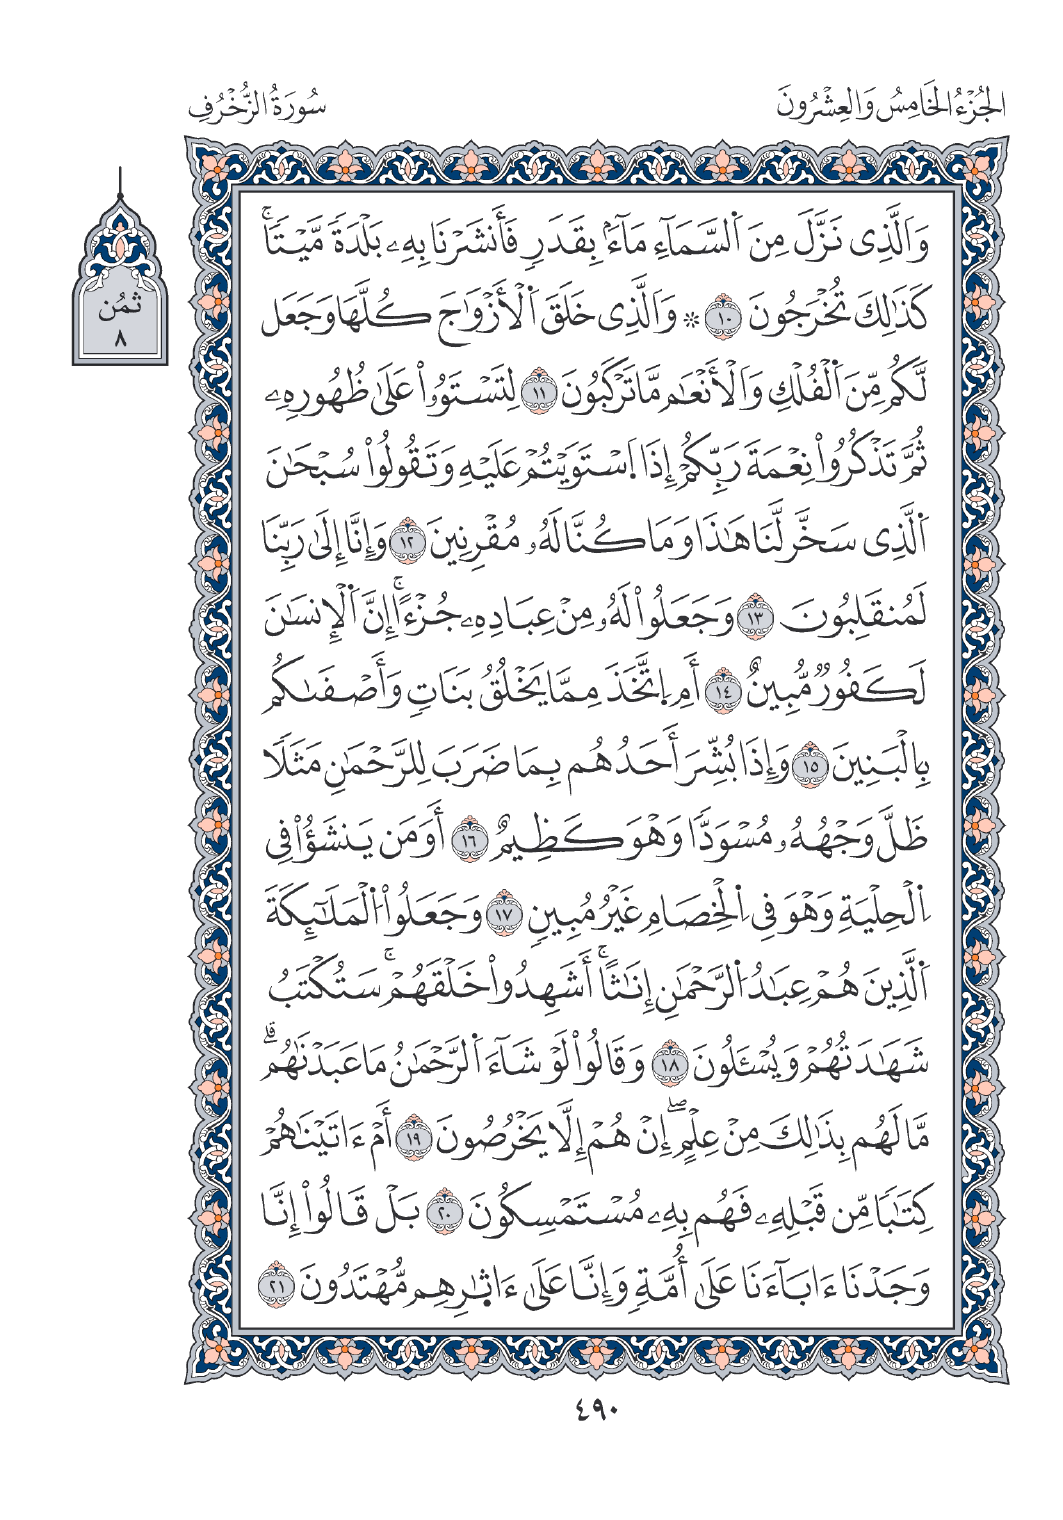 الجُزْءُ الخَامِسُ وَالعِشْرُونَ
سُورَةُ الزُّخْرُفِ
وَاَلَّذِى نَزَّلَ مِنَ اَ۬لسَّمَآءِ مَآءَۢ بِقَدَرٖ فَأَنشَرْنَا بِهِۦ بَلْدَةٗ مَّيْتاٗۚ
كَذَٰلِكَ تُخْرَجُونَ ١٠ ۞ وَاَلَّذِى خَلَقَ اَ۬لْأَزْوَٰجَ كُلَّهَا وَجَعَلَ
لَّكُم مِّنَ اَ۬لْفُلْكِ وَاَلْأَنْعَٰمِ مَّا تَرْكَبُونَ ١١ لِتَسْتَوُۥا۟ عَلَىٰ ظُهُورِهِۦ
ثُمَّ تَذْكُرُوا۟ نِعْمَةَ رَبِّكُمْ إِذَا اَ۪سْتَوَيْتُمْ عَلَيْهِ وَتَقُولُوا۟ سُبْحَٰنَ
اَ۬لَّذِى سَخَّر لَّنَا هَٰذَا وَمَا كُنَّا لَهُۥ مُقْرِنِينَ ١٢ وَإِنَّا إِلَىٰ رَبِّنَا
لَمُنقَلِبُونَ ١٣ وَجَعَلُوا۟ لَهُۥ مِنْ عِبَادِهِۦ جُزْءًاۚ إِنَّ اَ۬لْإِنسَٰنَ
لَكَفُورٞ مُّبِينٌ ١٤ أَمِ اِ۪تَّخَذَ مِمَّا يَخْلُقُ بَنَاتٖ وَأَصْفَىٰكُم
بِالْبَنِينَ ١٥ وَإِذَا بُشِّرَ أَحَدُهُم بِمَا ضَرَبَ لِلرَّحْمَٰنِ مَثَلاٗ
ظَلَّ وَجْهُهُۥ مُسْوَدّاٗ وَهْوَ كَظِيمٌ ١٦ أَوَمَن يَنشَؤُا۟ فِى
اِ۬لْحِلْيَةِ وَهْوَ فِى اِ۬لْخِصَامِ غَيْرُ مُبِينٖ ١٧ وَجَعَلُوا۟ اُ۬لْمَلَٰٓئِكَةَ
اَ۬لَّذِينَ هُمْ عِبَٰدُ اُ۬لرَّحْمَٰنِ إِنَٰثاًۚ أَشَهِدُوا۟ خَلْقَهُمْۚ سَتُكْتَبُ
شَهَٰدَتُهُمْ وَيُسْـَٔلُونَ ١٨ وَقَالُوا۟ لَوْ شَآءَ اَ۬لرَّحْمَٰنُ مَا عَبَدْنَٰهُمۗ
مَّا لَهُم بِذَٰلِكَ مِنْ عِلْمٍۖ إِنْ هُمْ إِلَّا يَخْرُصُونَ ١٩ أَمْ ءَاتَيْنَٰهُمْ
كِتَٰباٗ مِّن قَبْلِهِۦ فَهُم بِهِۦ مُسْتَمْسِكُونَ ٢٠ بَلْ قَالُوا۟ إِنَّا
وَجَدْنَا ءَابَآءَنَا عَلَىٰ أُمَّةٖ وَإِنَّا عَلَىٰ ءَاثِٰرِهِم مُّهْتَدُونَ ٢١
ثُمُن
٨
٤٩٠